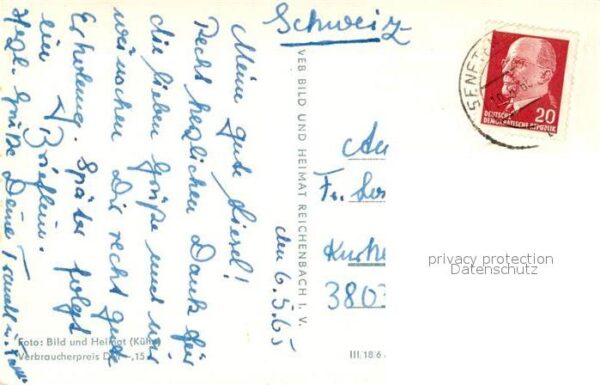 Schweiz
Meine gute Liesel!
Recht herzlichen Dank für
die lieben Grüße und wir
wünschen Dir recht gute
Erholung. Später folgt
ein Brieflein.
Herzl. Grüße Deine
den 6.5.65
VEB BILD UND HEIMAT REICHENBACH I. V.
Foto: Bild und Heimat
Verbraucherpreis
III/18/6
20
DEUTSCHE
DEMOKRATISCHE REPUBLIK
SENFT
Fr.
3803
privacy protection
Datenschutz